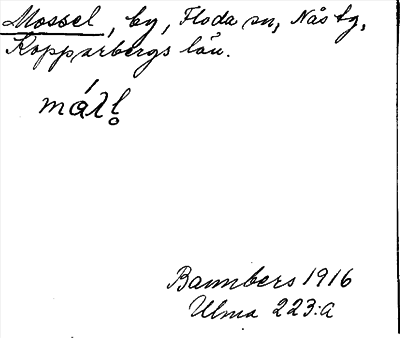 Mossel, by, Floda sn, Nås tg,
Kopparbergs län.
Bannbers 1916
Ulma 223:a